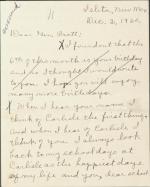 Isleta, New Mex
Dec. 2, 1920.
Dear Mrs. Pratt:
X I found out that the
6th of this month is your birthday
and so I thought I would write
to you. I hope you will enjoy
many more birthdays.
X When I hear your name I
think of Carlisle the first thing
and when I hear of Carlisle I
think of you. I always look
back to my school days at
Carlisle as the happiest days
of my life and you dear school